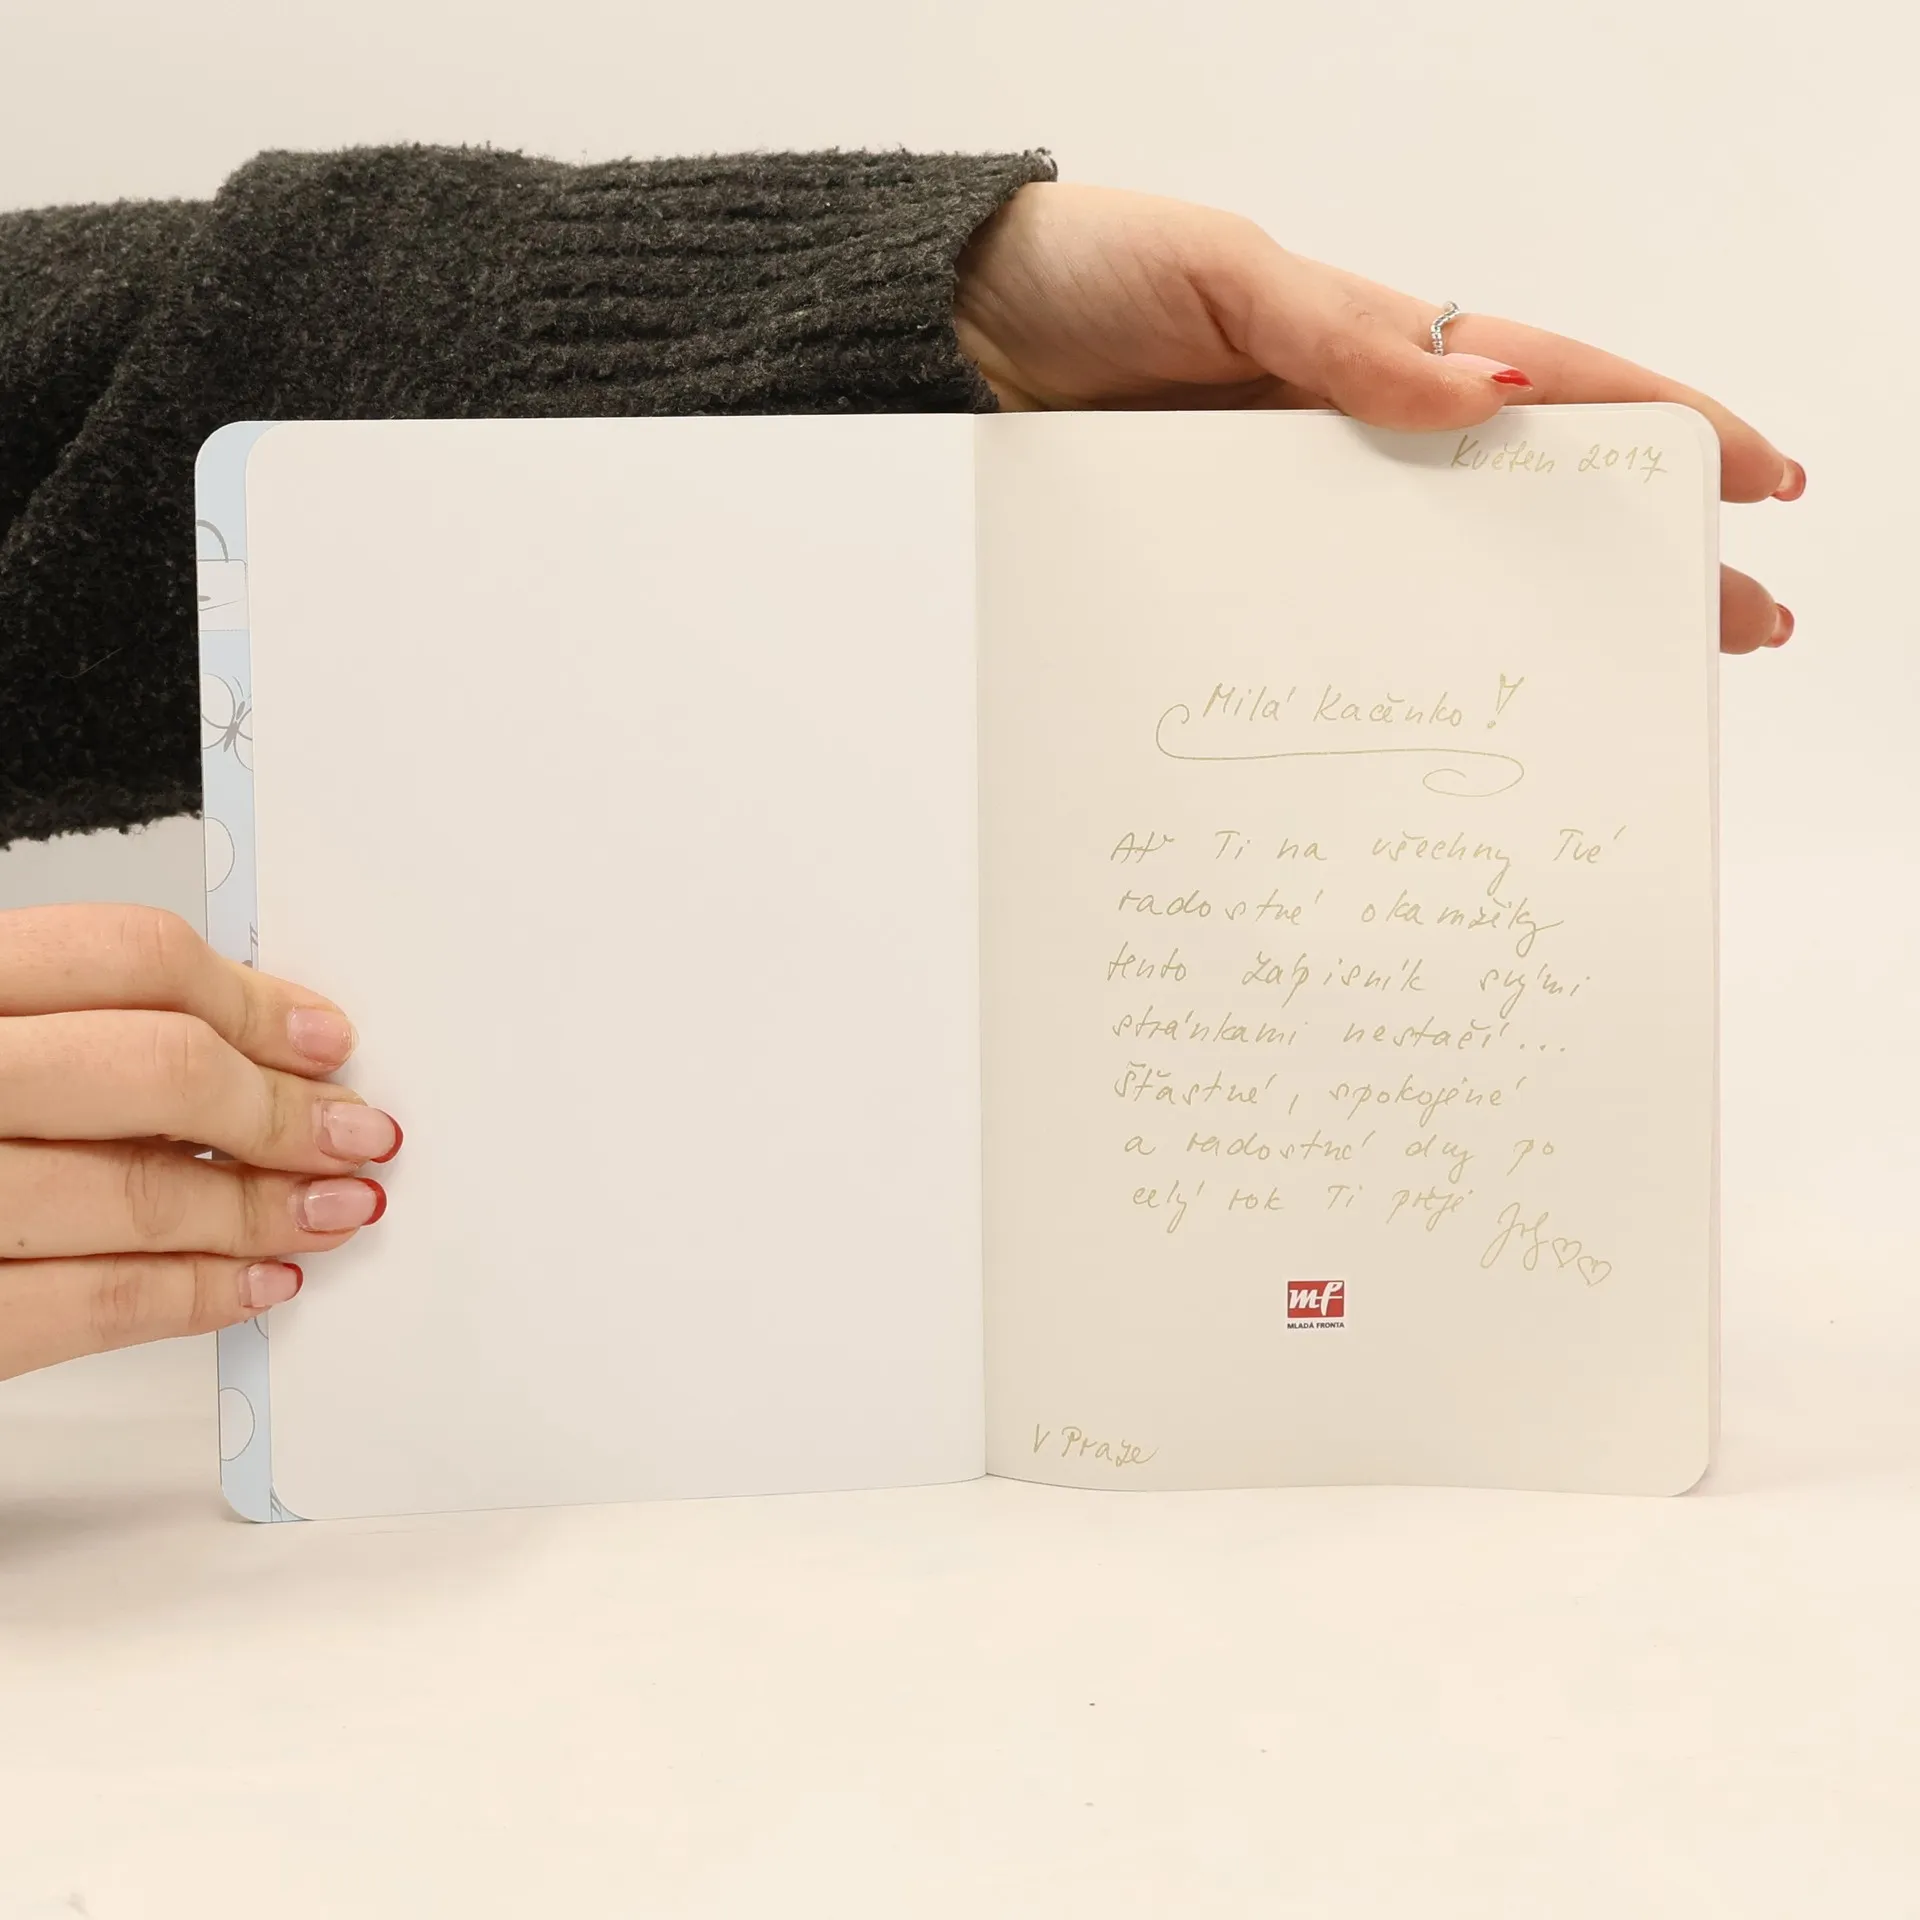 Květen 2017
Milá Kačenko!
Ať Ti na všechny Tvé
radostné okamžiky
tento zápisník svými
stránkami nestačí...
Šťastné, spokojené
a radostné dny po
celý rok Ti přeje
mf
MLADÁ FRONTA
V Praze